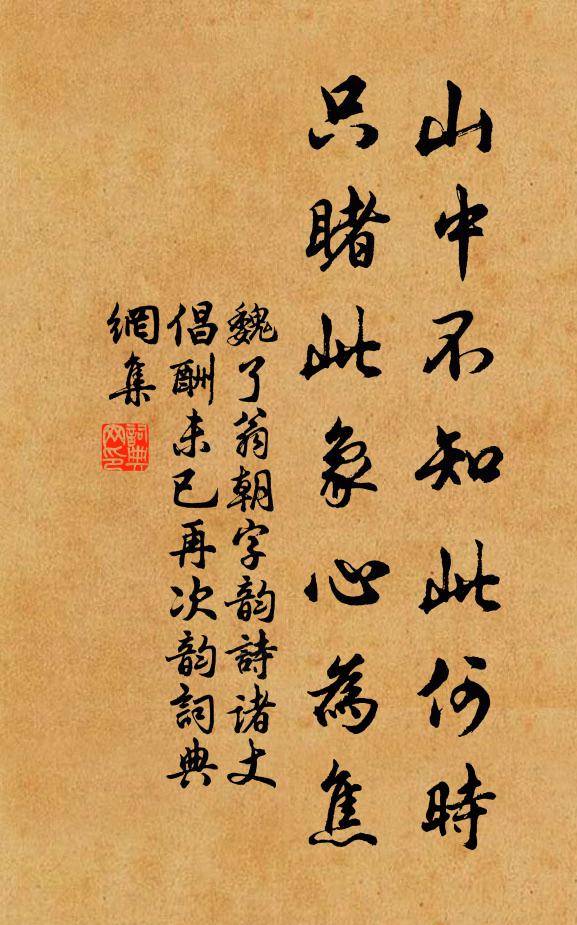 山中不知此何時
只睹此象心為焦
魏了翁朝字韵詩诸丈
倡酬未已再次韵詞典
網集
詞典网印